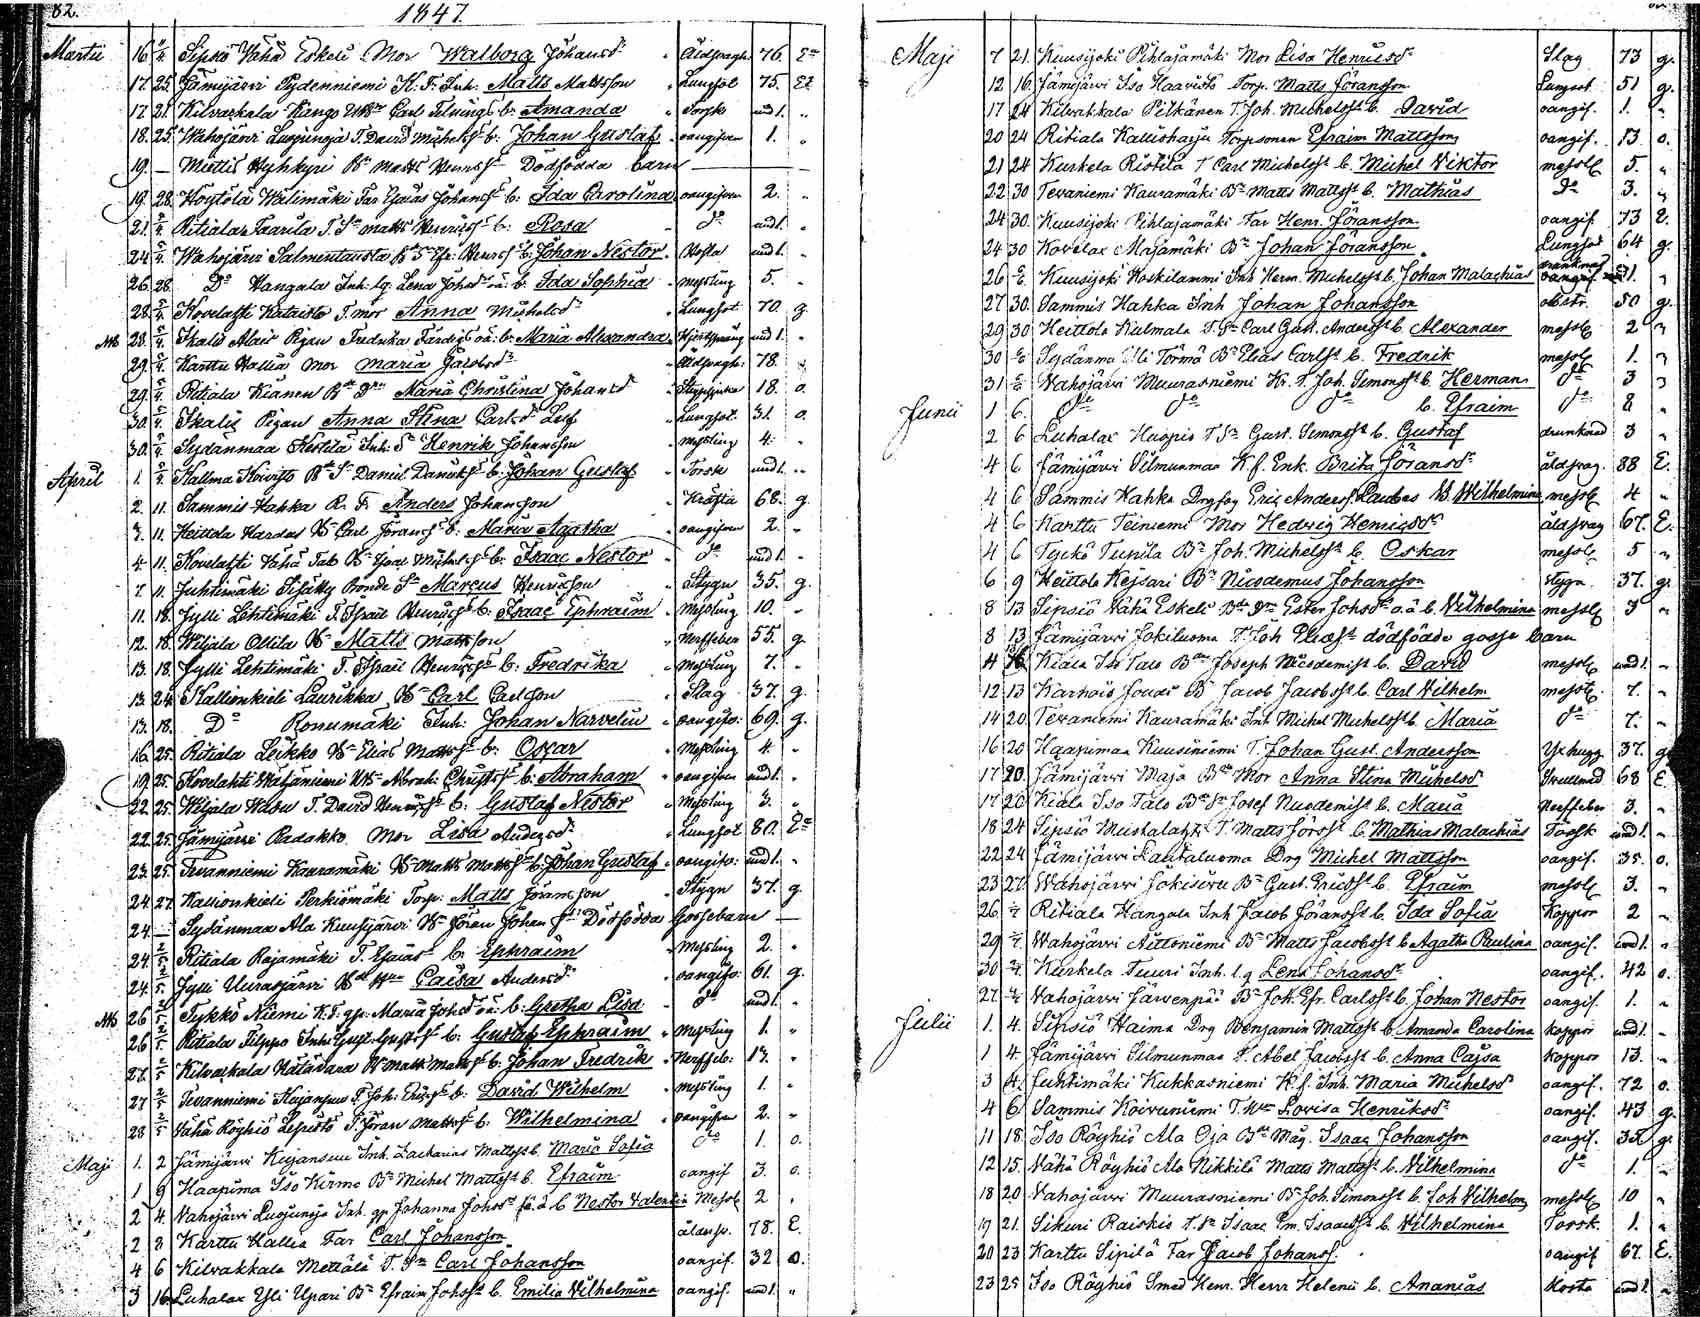 82.
1847.
Martii 16 5/4 Sipsiö Vähä Eskeli Mor Walborg Johansdr Åldfragh. 76. En
17. 25. Jämijärvi Pydenniemi K. F. Inh: Matts Mattsson Lungsot 75. Et
17 21. Kilvakkala Kango Carl b: Amanda Torsk und 1. "
18. 25. Wahojärvi Luojuneja T. David Michelss b: Johan Gustaf oangifven 1. "
19. — Miettis Hyhkyri Bn Matts Henrss Dödfödda barn —
19. 28. Höytölä Wälimäki Far Esaias Johanss b: Ida Carolina oangifven 2. "
21. 5/4 Ritiala Taarila T. Sn Matts Henricss b: Rosa do und 1. "
24. 5/4 Wahojärvi Salmentausta Efr: Henrss b: Johan Nestor Hosta und 1. "
26. 28. Do Hangala Inh: lg. Lena Johsdr oä: b: Ida Sophia messling 5. "
28. 5/4 Kovelahti Kataisto T. mor Anna Michelsdr Lungsot 70. g.
28. 5/4 Skalis Alais Pigan Fredrika oä: b: Maria Alexandra und 1. "
29. 5/4 Karttu Hallia Mor Maria Jacobsdr Åldfragh: 78.
29. 5/4 Ritiala Kianen Maria Christina Johansdr 18. o.
30. 5/4 Skalis Pigan Anna Stina Carlsdr Lungsot. 31. o.
30. 5/4 Sydänmaa Kestilä Inh: Sn Henrik Johansson Messling 4. "
April 1. 5/4 Kallma Koivisto Daniel b: Johan Gustaf Torsk und 1. "
2 11. Sammis Hahka R. F. Anders Johansson Kräfta 68. g.
3. 11. Heittola Hardas Bn Carl Göranss b: Maria Agatha oangifven 2. "
4 11. Kovelahti Vähä Talo b: Isaac Nestor do und 1. "
7. 11. Juhtimäki Bonde Sn Marcus Henricsson Stygn 35. g.
11. 18. Jylli Lehtimäki T. Israel Henricss b: Isaac Ephraim Messling 10. "
12. 18. Wiljala Ollila Bn Matts Mattsson Nerffeber 55. g
13. 18. Jylli Lehtimäki T. Israel Henricss b: Fredrika Messling 7. "
13. 24. Kallionkieli Laurikka Bn Carl Carlsson Slag 37. g.
13. 18. Do Ronumäki Inh: Johan Narvelin oangifv: 69. g.
16. 25. Ritiala Leikko Bn Elias Mattss b: Oscar Messling 4. "
19. 25. Kovelahti Abrah: Christss b: Abraham oangifven und 1. "
22. 25. Wiljala Wahu T. David Henricss b: Gustaf Nestor Messling 3. "
22. 25. Jämijärvi Radakko Mor Lisa Andersdr Lungsot 80. En
23. 25. Tevanniemi Kauramäki Bn Matts Mattss b: Johan Gustaf oangifv: und 1. "
24 27. Kallionkieli Perkiömäki Torp: Matts Göransson Stygn 37. g
24. — Sydänmaa Ala Kuusijärvi Bn Göran Johanss Dödfödda Gossebarn —
24 2/5 Ritiala Rajamäki T. Esaias b: Ephraim Messling 2. "
24. 2/5 Jylli Uurasjärvi Caisa Andersdr oangifv: 61. g.
26 2/5 Tykkö Niemi K. F. gp. Maria Johsdr oä: b: Gretha Lisa do und 1. "
26 2/5 Ritiala Filppo Inh: Gust: Gustss b: Gustaf Ephraim Messling 1. "
27. 2/5 Kilvakkala Hätävara Bn Matts Mattss b: Johan Fredrik Nerffeb: 13. "
27 2/5 Tevanniemi Kujanpuu T. Joh: Ericss b: David Wilhelm Messling 1. "
28 2/5 Vähä Röyhiö Lepistö T. Göran Mattss b: Wilhelmina oangifven 2. "
Maji 1. 2 Jämijärvi Kujansuu Inh. Zacharias Mattss b. Maria Sofia do 1. o.
1 9 Haapima Iso Kirmo Bn Michel Mattss b. Efraim oangif 3. o.
2 4. Vahojärvi Luojuneja Inh. gp Johanna Johsdr b Nestor Valentin Messl 2 "
2 8 Karttu Hallia Far Carl Johansson 78. E.
4 6 Kilvakkala Mettälä T. Sn Carl Johansson oangif. 32 o.
3 16 Luhalax Yli Upari Bn Efraim Johss b. Emilia Vilhelmina oangif. und 1. "
Maji 7 21. Kuusijoki Pihlajamäki Mor Lisa Henricsdr Slag 73 g.
12 16. Jämijärvi Iso Haavisto Torp. Matts Göransson Lungsot 51 g.
17 24 Kilvakkala Pitkänen T. Joh. Michelss b. David oangif. 1. "
20 24 Ritiala Kallioharju Torpsonen Efraim Mattsson oangif. 13 o.
21 24 Kurkela Ristila T Carl Michelss b. Michel Viktor messl 5. "
22 30 Tevaniemi Kauramäki Bn Matts Mattss b. Mathias do 3. "
24 30. Kuusijoki Pihlajamäki Far Henr. Göransson oangif. 73 E.
24 30 Kovelax Majamäki Bn Johan Göransson Lungsot 64 g.
26 6/6 Kuusijoki Koskilammi Inh Herm. Michelss b. Johan Malachias drunknad und 1. "
27 30. Sammis Hahka Inh Johan Johansson obstr. 50 g.
29 30 Heittola Kulmala T. Sn Carl Gust. Anderss b. Alexander messl 2 "
30 6/6 Sydänma Yli Törmä Bn Elias Carlss b. Fredrik messl 1. "
31 6/6 Vahojärvi Muurasniemi Kr. T. Joh. Simonss b. Herman do 3 "
Junii 1 6. do do do b. Efraim do 8 "
2 6 Luhalax Huopio T Sn Gust. Simonss b. Gustaf drunknad 3 "
4 6 Jämijärvi Silmunmaa K. f. Enk. Brita Göransdr åldfrag. 88 E.
4 6 Sammis Hahka Eric Anderss b. Wilhelmina messl 4 "
4 6 Karttu Teiniemi Mor Hedvig Henricsdr åldfrag 67. E.
4 6 Tyckö Tunila Bn Joh. Michelss b. Oskar messl 5 "
6 9 Heittola Keisari Bn Nicodemus Johansson stygn 37. g.
8 13 Sipsiö Vähä Eskeli Ester Johsdr o.ä b. Vilhelmina messl 3 "
8 13 Jämijärvi Jokiluoma T. Joh Eliess dödfödde gosse barn
11 16 Kiala Iso Talo Bn Joseph Nicodemiss b. David messl und 1. "
12 13 Karhois Jouas Bn Jacob Jacobss b. Carl Vilhelm messl 7. "
14 20. Tevaniemi Kauramäki Inh Michel Michelss b. Maria do 7. "
16 20 Haapimaa Kuusiniemi T. Johan Gust. Andersson Yxhugg 37. g
17 20. Jämijärvi Maja Mor Anna Stina Michelsdr 68 E
17 20 Kiala Iso Talo Josef Nicodemiss b. Maria Nerffeber 3. "
18 24 Sipsiö Mustalahti T. Matts Görss b. Mathias Malachias Torsk und 1. "
22 24 Jämijärvi Rautaluoma Drg Michel Mattsson oangif. 35. o.
23 27. Wahojärvi Jokisivu Bn Gust. Ericss b. Efraim messl 3. "
26 4/7 Ritiala Hangala Inh Jacob Göranss b. Ida Sofia Koppor 2 "
29 4/7 Wahojärvi Aittoniemi Bn Matts Jacobss b. Agatha Paulina oangif. und 1. "
30 4/7 Kurkela Tuuri Inh. l.g Lena Johansdr oangif. 42 o.
27 4/7 Vahojärvi Järvenpää Bn Joh. Efr. Carlss b. Johan Nestor oangif. 1. "
Julii 1. 4. Sipsiö Haima Drg Benjamin Mattss b. Amanda Carolina koppor und 1. "
1 4. Jämijärvi Silmunmaa T. Abel Jacobss b. Anna Cajsa koppor 13. "
3 4. Juhtimäki Kukkasniemi K. f. Inh. Maria Michelsdr oangif. 72 o.
4 6. Sammis Koivuniemi T. Hu Lovisa Henriksdr oangif. 43 g.
11 18. Iso Röyhiö Ala Oja Bn Måg. Isaac Johansson oangif. 35 g.
12 15. Vähä Röyhiö Ala Nikkilä Matts Mattss b. Vilhelmina do 1. "
18 20 Vahojärvi Muurasniemi Bn Joh. Simonss b. Joh Vilhelm messl 10 "
19 21. Sikuri Raiskio T. Sn Isaac Em. Isaacss b. Vilhelmina Torsk. 1. "
20 23 Karttu Sipilä Far Jacob Johanss. oangif 67. E.
23 25 Iso Röyhiö Smed Henr. Herr Helenii b. Ananias Hosta und 1. "